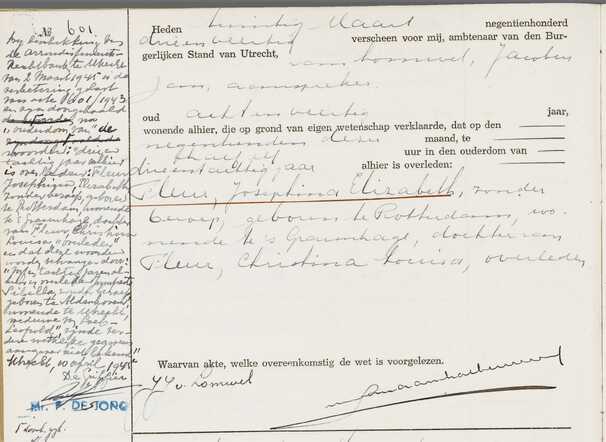 № 601
Bij beschikking der
de Arrondissements-
Rechtbank te Utrecht
van 2 Maart 1945 is de
verbetering gelast
van akte № 601/1943
en zijn doorgehaald
de woorden, na
"ouderdom van" de
woorden: "drieën
tachtig jaar alhier
is overleden: Fleur
Josephina, Elizabeth
zonder beroep, geboren
te Rotterdam, wonende
te 's Gravenhage, dochter
van Fleur, Christina
Louisa, overleden"
en dat deze woorden
worden vervangen door:
Sibilla, zonder beroep
geboren te Aldenhoven,
wonende te Utrecht,
weduwe van
Leopold", zijnde
Utrecht, 10 april 1945
De Griffier
Mr. P. DE JONG
Heden twintig Maart negentienhonderd
drieenveertig verscheen voor mij, ambtenaar van den Bur-
gerlijken Stand van Utrecht, van Lomwel, Jacobus
Jan, aanspreker
oud achtenveertig jaar,
wonende alhier, die op grond van eigen wetenschap verklaarde, dat op den
negentienden dezer maand, te
half elf uur in den ouderdom van
drieentachtig jaar alhier is overleden:
Fleur, Josephina Elizabeth, zonder
beroep, geboren te Rotterdam, wo-
nende te 's Gravenhage, dochter van
Fleur, Christina Louisa, overleden
Waarvan akte, welke overeenkomstig de wet is voorgelezen.
J J v. Lomwel